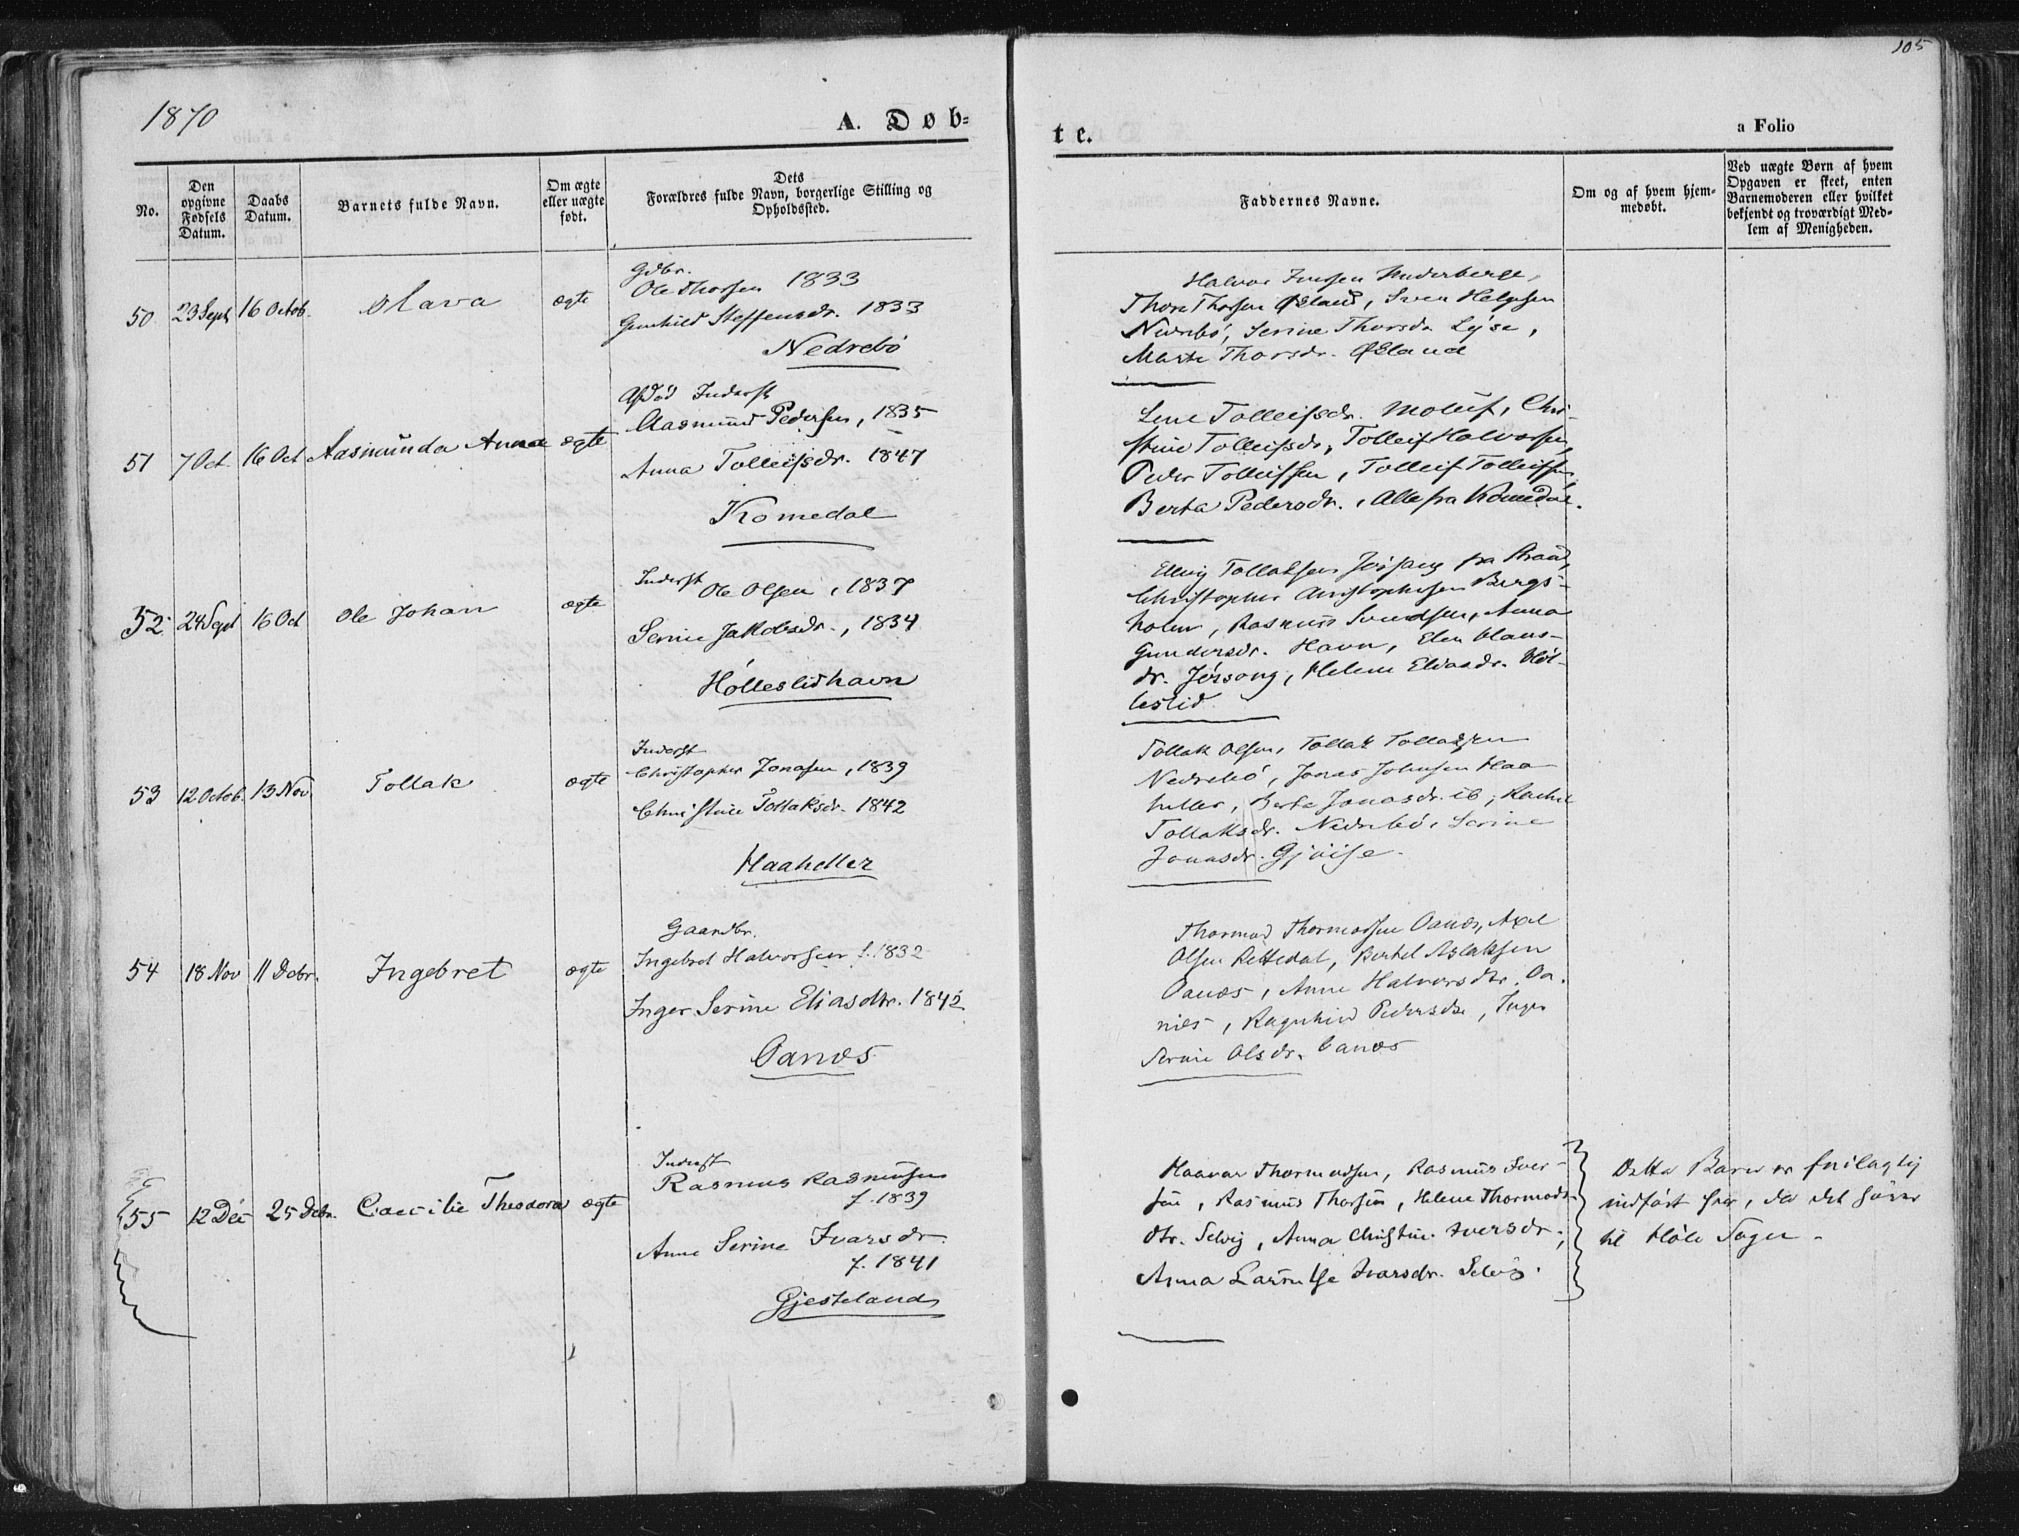 1870
A. Døb-
No.
Den opgivne Fødsels Datum.
Daabs Datum.
Barnets fulde Navn.
Om ægte eller uægte født.
Dets
Forældres fulde Navn, borgerlige Stilling og
Opholdssted.
Gdbr.
Ole Thorsen 1833
50 23 Sept 16 Octob. Olava ægte
Gunhild Steffensdr. 1833
Nedrebö
Afdød Inderst
Aasmund Pedersen, 1835
51 7 Oct 16 Oct Aasmunda Anna ægte
Anna Tolleifsdr. 1847
Komedal
Inderst
Ole Olsen, 1837
52 24 Sept 16 Oct Ole Johan ægte
Serine Jakobsdr., 1834
Hölleslidhavn
Inderst
Christopher Jonasen, 1839
53 12 Octob. 13 Nov. Tollak ægte
Christine Tollaksdr. 1842
Haaheller
Gaardbr.
Ingebret Halvorsen f. 1832
54 18 Nov 11 Decbr. Ingebret ægte
Inger Serine Eliasdtr. 1842
Oanæs
Inderst
Rasmus Rasmusen
f. 1839
55 12 Dec 25 Debr. Caecilie Theodora ægte
Anne Serine Ivarsdr.
f. 1841
Gjesteland
105
te.
a Folio
Faddernes Navne.
Om og af hvem hjem-
medøbt.
Ved uægte Børn af hvem
Opgaven er skeet, enten
Barnemoderen eller hvilket
bekjendt og troværdigt Med-
lem af Menigheden.
Halvor Jensen Underberge,
Thore Thorsen Øsland, Sven Helgesen
Nedrebö, Serine Thorsdr Lyse,
Marte Thorsdr. Øsland
Lene Tolleifsdr. Chri-
stine Tolleifsdr, Tolleif Halvorsen,
Peder Tolleifsen, Tolleif Tolleifsen,
Berta Pedersdr., Alle fra Komedal.
Tollaksen fra
Christopher Christophersen Bergs-
holm, Rasmus Svendsen, Anna
Gundersdr. Havn, Elen Claus-
dr. Jøssang, Helene Eliasdr. Höl-
leslid.
Tollak Olsen, Tollak Tollaksen
Nedrebö, Jonas Johnsen Haa-
heller, Berta Jonasdr. ib, Rachel
Tollaksdr. Nedrebö, Serine
Jonasdr. Gjöise.
Thormod Thormodsen Oanæs, Axel
Olsen Rettedal, Bertel Aslaksen
Oanæs, Anne Halvorsdtr. Oa-
næs, Ragnhild Pedersdtr, Inger
Serine Olsdr. Oanæs
Haavar Thormodsen, Rasmus Iver-
sen, Rasmus Thorsen, Helene Thormods-
dtr. Selvig, Anna Christine Iversdr.,
Anna Larsdr. Ivarsdr. Selvig.
Dette Barn er feilagtig
indført her, da det hører
til Høle Sogn.